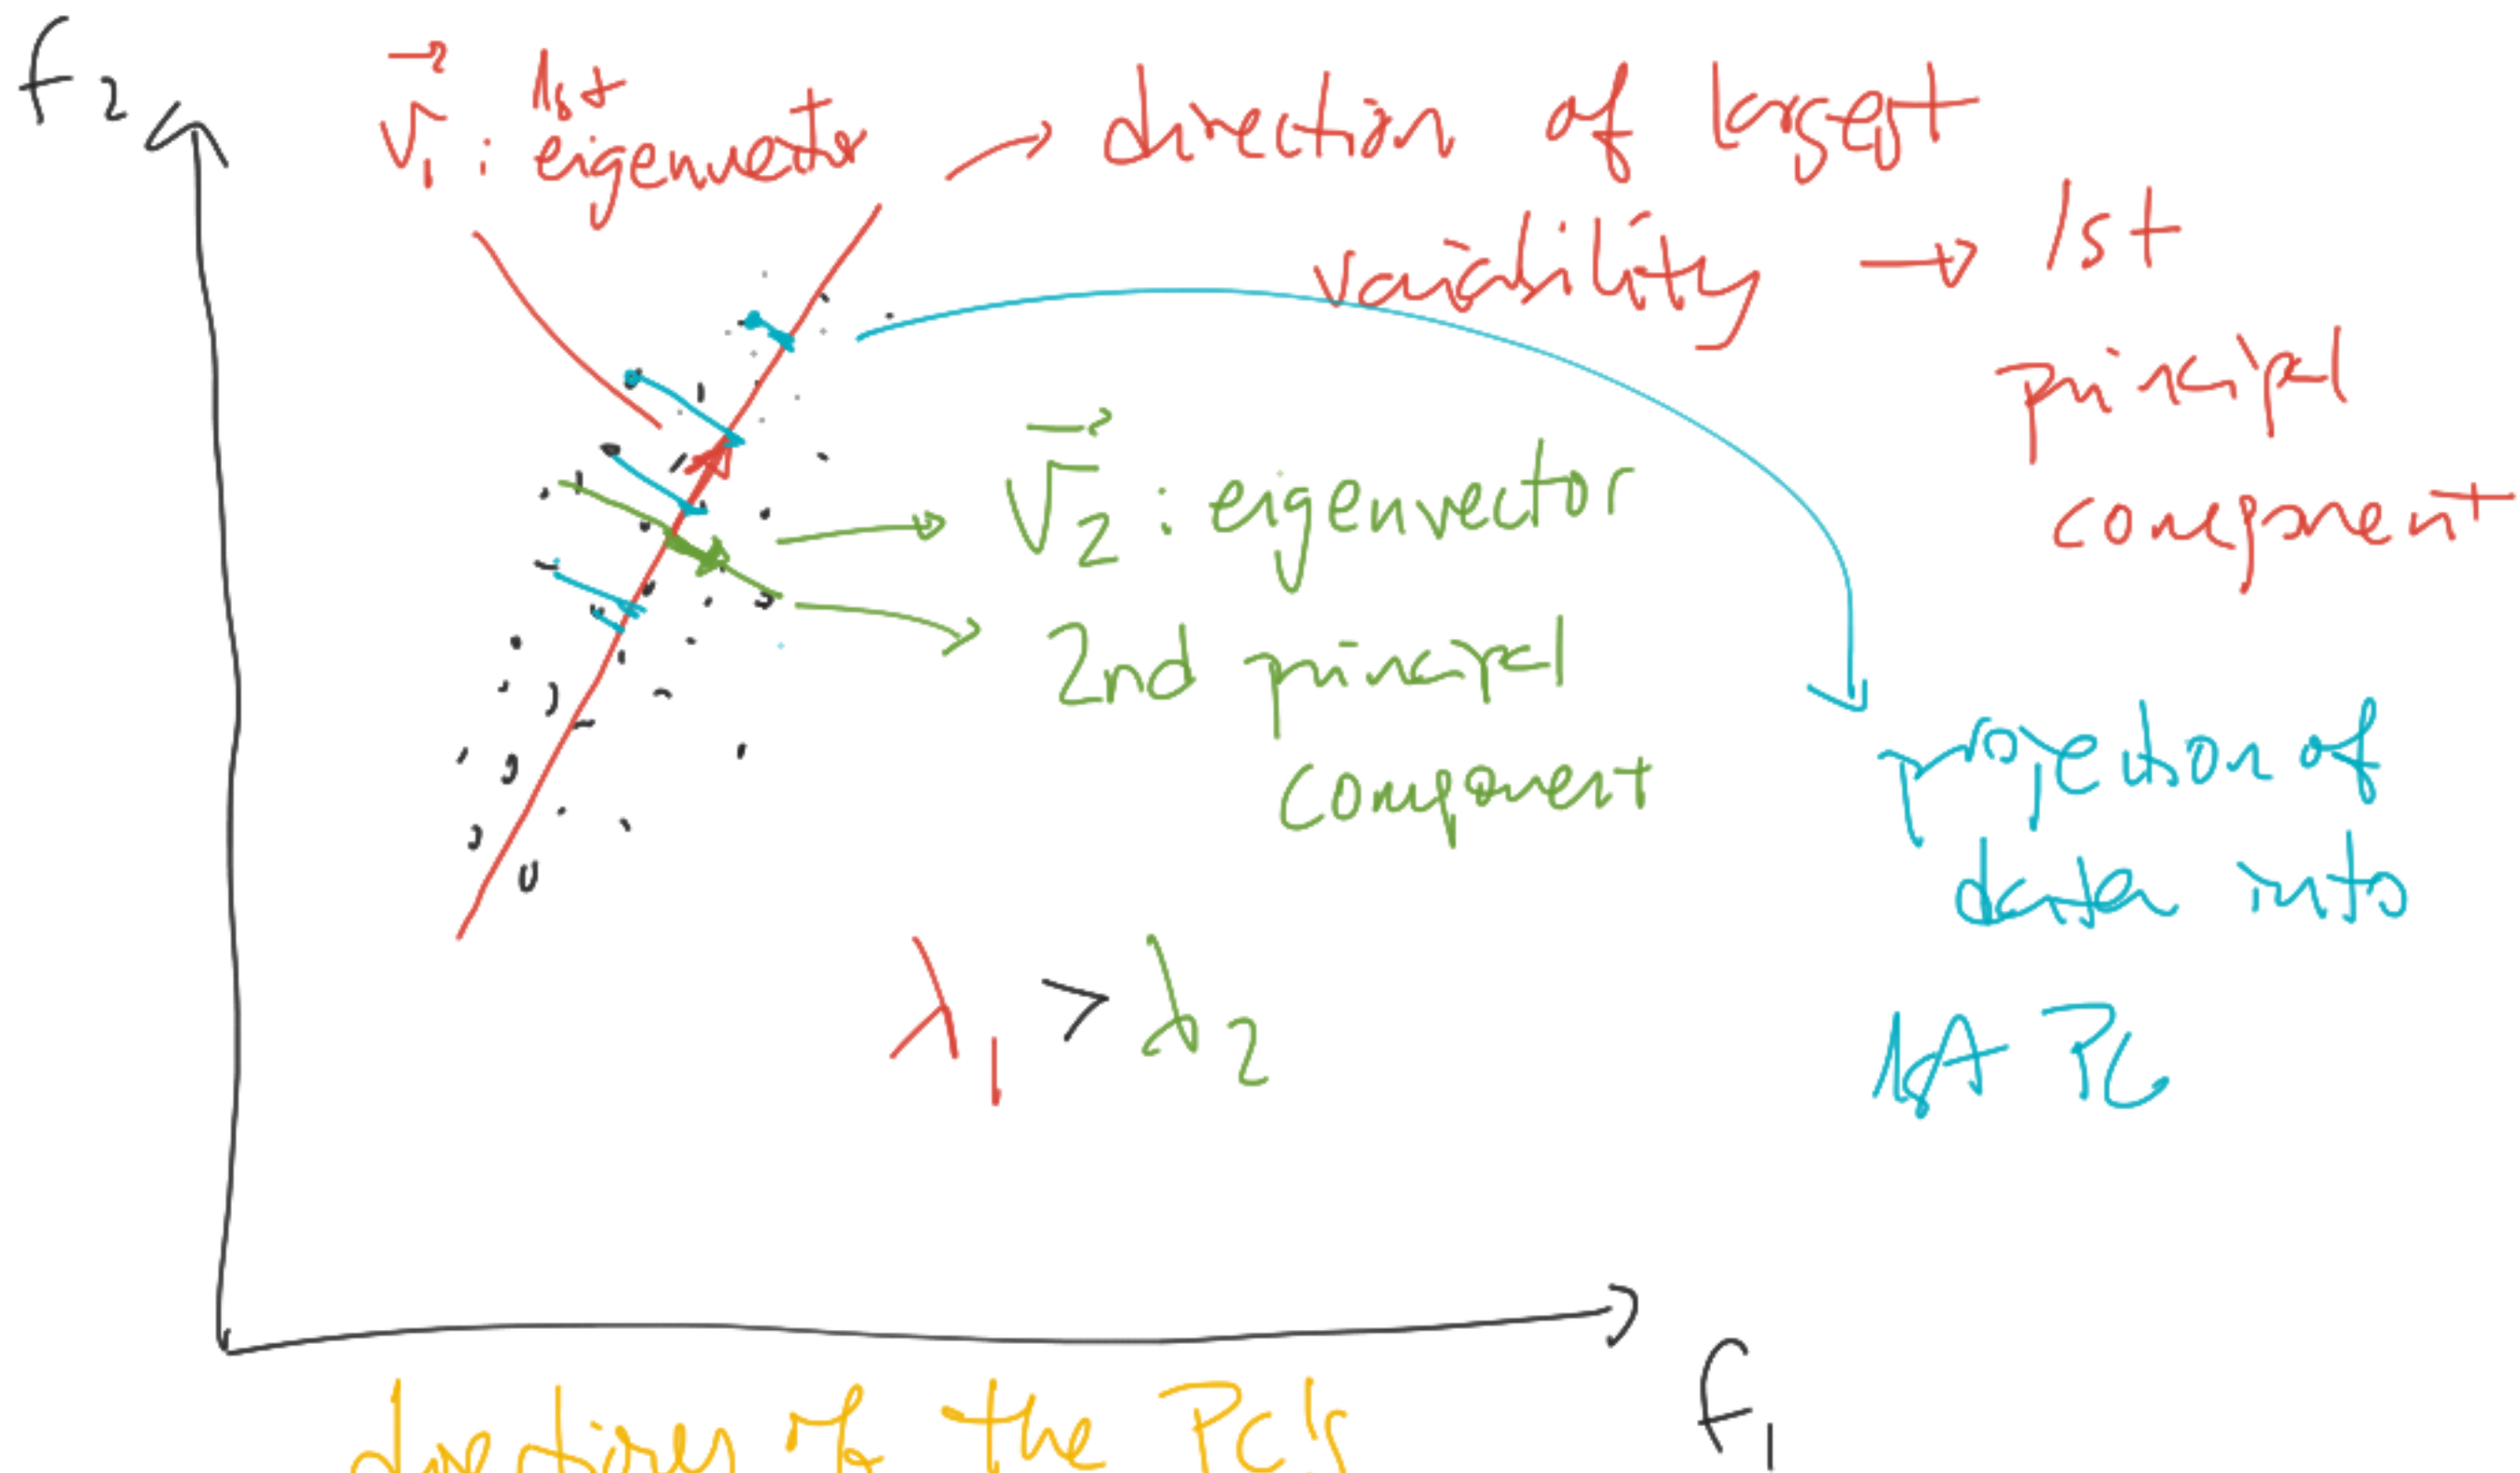 f2
v1 : 1st eigenvector → direction of largest
variability → 1st
principal
component
v2 : eigenvector
2nd principal
component
projection of
data into
1st PC
λ1 > λ2
f1
directions of the PC's